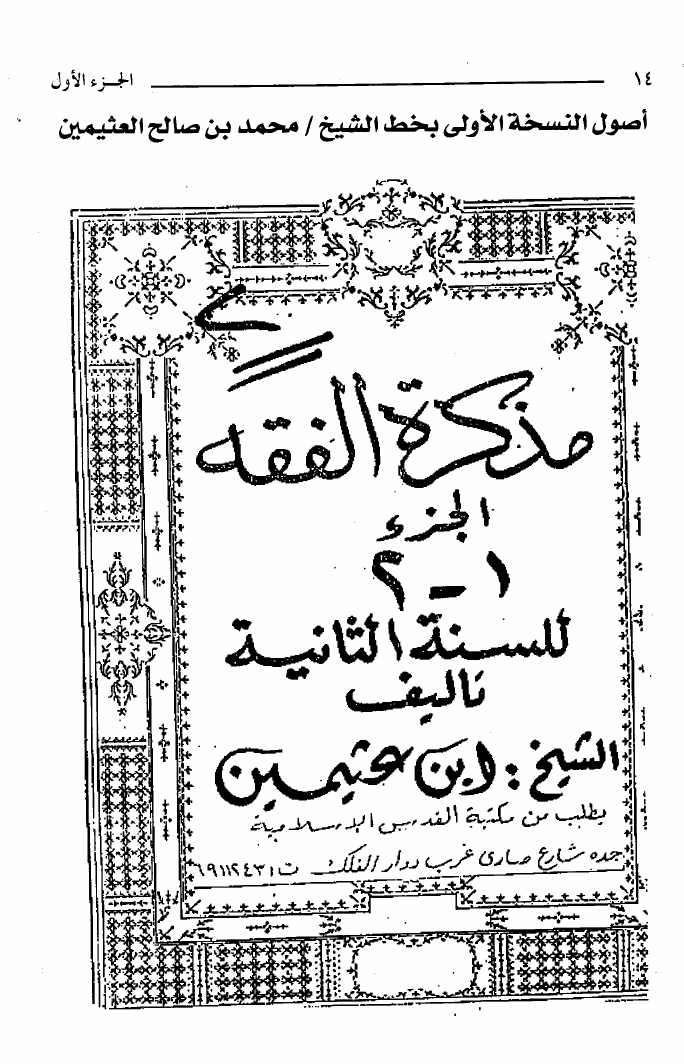 ١٤ الجزء الأول
أصول النسخة الأولى بخط الشيخ / محمد بن صالح العثيمين
مذكرة الفقه
الجزء
١ - ٢
للسنة الثانية
تأليف
الشيخ : ابن عثيمين
يطلب من مكتبة القدس الإسلامية
جده شارع صارى غرب دوار الفلك ت